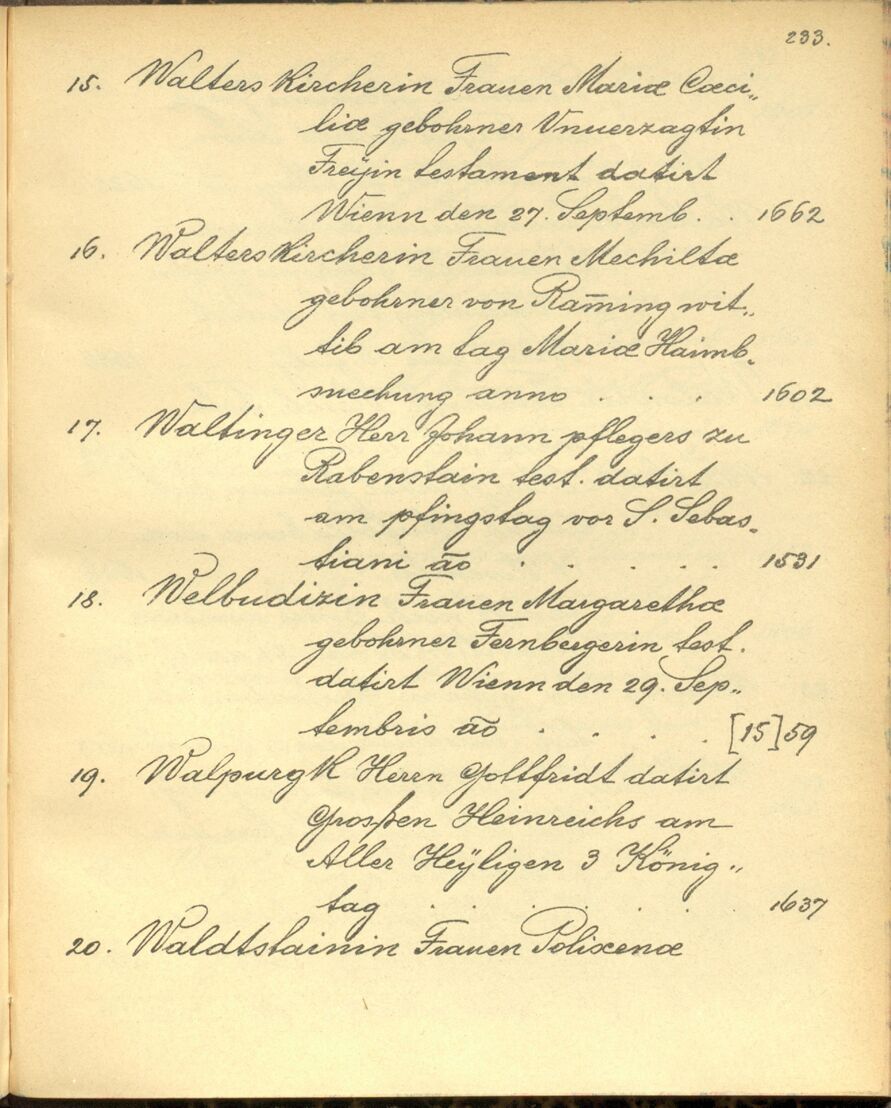 233.
15. Walterskircherin Frauen Mariæ Cæci„
liæ gebohrner Vnuerzagtin
Freÿin testament datirt
Wienn den 27. Septemb. . . 1662
16. Walterskircherin Frauen Mechiltæ
gebohrner von Ram̅ing wit„
tib am tag Mariæ Haimb„
suechung anno . . . 1602
17. Waltinger Herr Johann pflegers zu
Rabenstain test. datirt
am pfingstag vor S. Sebas„
tiani ao̅ . . . . . 1531
18. Welbudizin Frauen Margarethæ
gebohrner Fernbergerin test.
datirt Wienn den 29. Sep„
tembris ao̅ . . . . [15]59
19. Walpurg K Herrn Gottfridt datirt
Großen Heinreichs am
Aller Heÿligen 3 König„
tag . . . . . . 1637
20. Waldtstainin Frauen Polixenæ